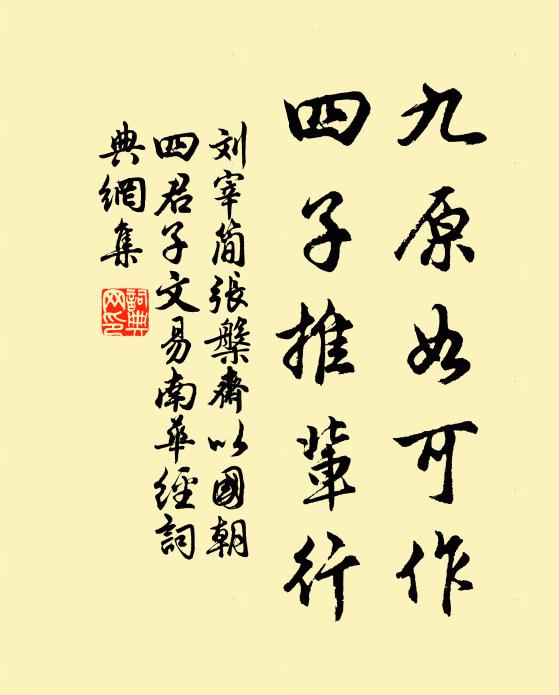 九原如可作
四子推輩行
刘宰简張槃齋以國朝
四君子文易南華經詞
典網集
詞典網印